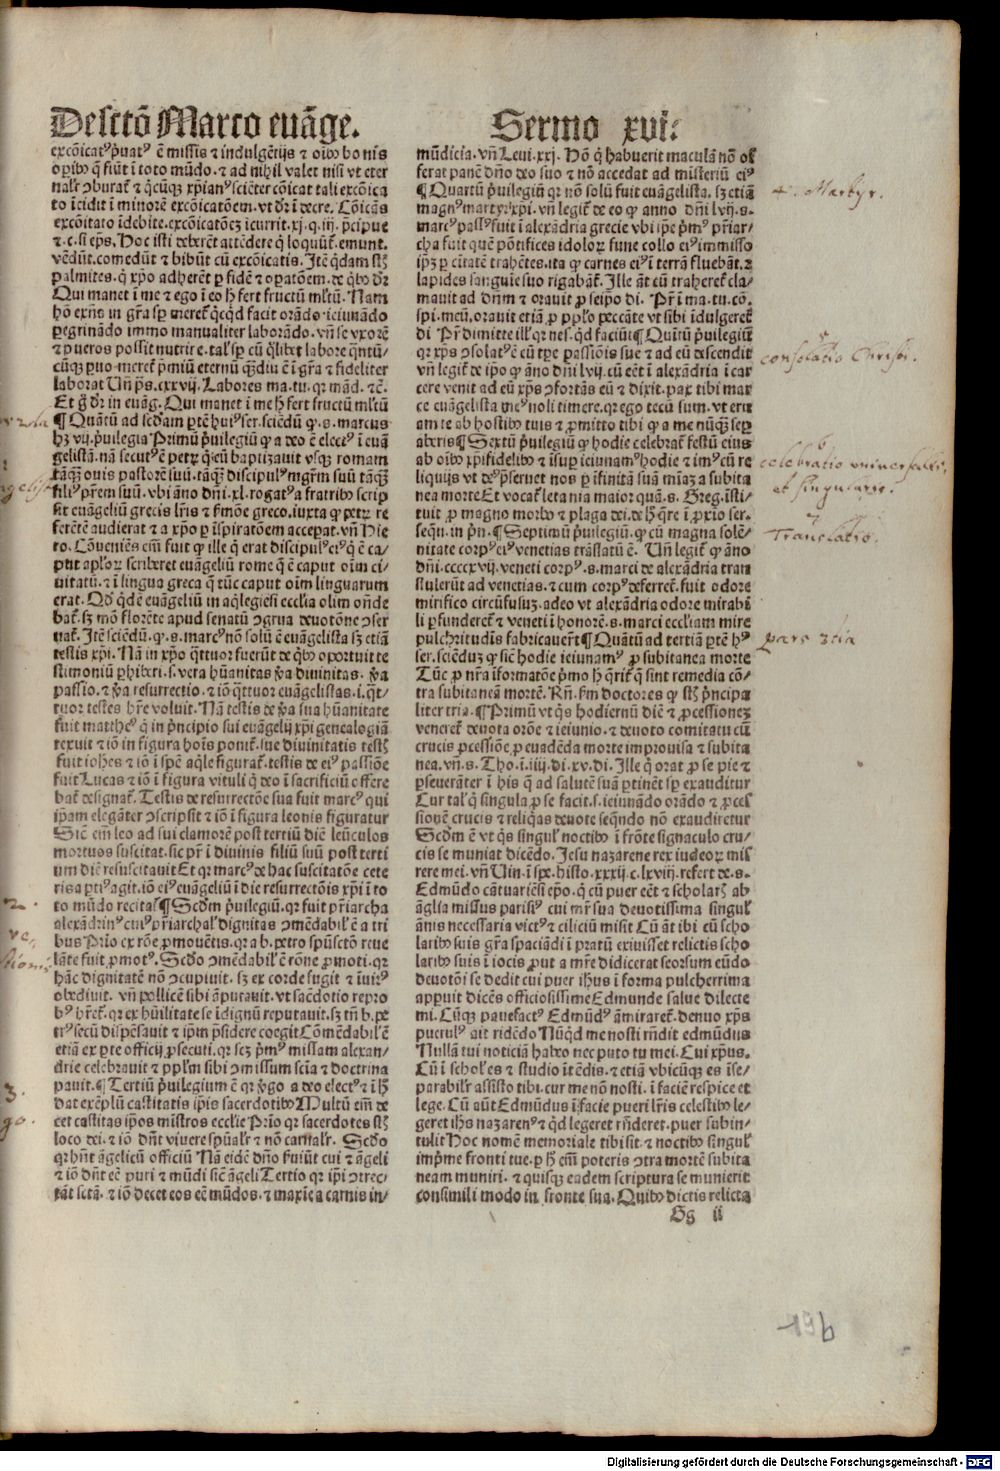 De sctō Marco euāge.
Sermo xvi.
excōicatꝰ pͥuatꝰ ē missis ⁊ indulgētijs ⁊ oībꝰ bonis
oꝑibꝰ q̄ fiūt ī toto mūdo. ⁊ ad nihil valet nisi vt eter
to īcidit ī minorē excōicatōem. vt dr̄ ī decre. Cōicās
⁊.c. si eps̄. Hoc isti deberēt attēdere q̄ loquūt᷑. emunt.
vēdūt. comedūt ⁊ bibūt cū excōicatis. Itē q̄dam sūt
palmites. q̄ xp̄o adherēt ꝑ fidē ⁊ oꝑatōem. de qͥbꝰ dr̄
Qui manet ī me ⁊ ego ī eo h̓ fert fructū ml̓tū. Nam
hō exn̄s in gr̄a sꝑ meret᷑ qͥcqͥd facit orādo. ieiunādo
ꝑegrinādo immo manualiter laborādo. vn̄ se vxorē
⁊ pueros possit nutrire. tal̓ sꝑ cū qͣlibet labore qͣntū
cūqꝫ ꝑuo meret᷑ pͥmiū eternū qͣmdiu ē ī gr̄a ⁊ fideliter
laborat Un̄ ps̄. cxxvij. Labores ma. tu. qꝛ mād. ⁊c̄.
Et g̊ dr̄ in euāg. Qui manet ī me h̓ fert fructū ml̓tū
¶ Quātū ad scd̓am ꝑtē huiꝰ ser. sciēdū ꝙ. s. marcus
hꝫ vij. pͥuilegia Primū pͥuilegiū ꝙ a deo ē electꝰ ī euā
gelistā. nā secutꝰ ē petrū q̄ eū baptizauit vsqꝫ romam
tāqͣꝫ ouis pastorē suū. tāqͣꝫ discipulꝰ mgr̄m suū tāqͣꝫ
filiꝰ pr̄em suū. vbi āno dn̄i. xl. rogatꝰ a fratribꝰ scrip
sit euāgeliū grecis lr̄is ⁊ ẜmōe greco. iuxta ꝙ petrū re
ferētē audierat ⁊ a xp̄o ꝑ īspiratōem acceꝑat. vn̄ Hie
ro. Cōueniēs em̄ fuit ꝙ ille q̄ erat discipulꝰ eiꝰ q̄ ē ca
put apl̓oꝝ scriberet euāgeliū rome q̄ ē caput oīm ci
uitatū. ⁊ ī lingua greca q̄ tūc caput oīm linguarum
erat. Qd̓ qͥdē euāgeliū in aqͥlegiēsi ecclīa olim on̄de
bat᷑. sꝫ mō florēte apud senatū ꝯgrua deuotōne ꝯser
uat᷑. Itē sciēdū. ꝙ. s. marcꝰ nō solū ē euāgelista sꝫ etiā
testis xp̄i. Nā in xp̄o qͣttuor fuerūt de qͥbꝰ oportuit te
stimoniū ꝑhiberi. s. vera hūanitas v̓a diuinitas. v̓a
passio. ⁊ v̓a resurrectio. ⁊ iō qͣttuor euangelistas. ī. qͣt
tuor testes hr̄e voluit. Nā testis de v̓a sua hūanitate
fuit mattheꝰ q̄ in pͥncipio sui euāgelij xp̄i genealogiā
texuit ⁊ iō in figura hoīs ponit᷑. sue diuinitatis testꝭ
fuit ioh̄es ⁊ iō ī spē aqͥle figurat᷑. testis de eiꝰ passiōe
fuit Lucas ⁊ iō ī figura vituli q̄ deo ī sacrificiū offere
bat᷑ designat᷑. Testis de resurrectōe sua fuit marcꝰ qui
ip̄am elegāter ꝯscripsit ⁊ iō ī figura leonis figuratur
Sic̄ em̄ leo ad sui clamorē post tertiū diē leūculos
mortuos suscitat. sic pr̄ ī diuinis filiū suū post terti
um diē resuscitauit Et qꝛ marcꝰ de hac suscitatōe cete
ris aꝑtiꝰ agit. iō eiꝰ euāgeliū ī die resurrectōis xp̄i ī to
to mūdo recitat᷑ ¶ Scd̓m pͥuilegiū. qꝛ fuit pr̄iarcha
alexādrinꝰ cuiꝰ pr̄iarchal̓ dignitas ꝯmēdabil̓ ē a tri
bus Prīo ex rōe ꝓmouētis. qꝛ a. b. petro spūsctō reue
lāte fuit ꝓmotꝰ. Scd̓o ꝯmēdabil̓ ē rōne ꝓmoti. qꝛ
hāc dignitatē nō ꝯcupiuit. sꝫ ex corde fugit ⁊ īuitꝰ
obediuit. vn̄ pollicē sibi āputauit. vt sac̓dotio repro
bꝰ hr̄et᷑. qꝛ ex hūilitate se īdignū reputauit. sꝫ tn̄ b. pe
trꝰ secū dispēsauit ⁊ ip̄m pͥsidere coegit Cōmēdabil̓ ē
etiā ex ꝑte officij ꝓsecuti. qꝛ scꝫ pͥmꝰ missam alexan
drie celebrauit ⁊ ppl̓m sibi ꝯmissum sc̄ia ⁊ doctrina
pauit. ¶ Tertiū pͥuilegium ē qꝛ v̓go a deo electꝰ ⁊ ī h̓
dat exēplū castitatis ip̄is sacerdotibꝰ Multū em̄ de
cet castitas ip̄os mīstros ecclīe Prīo qꝛ sacerdotes sūt
loco dei. ⁊ iō dn̄t viuere spūal̓r ⁊ nō carnal̓r. Scd̓o
qꝛ hn̄t āgelicū officiū Nā eidē dn̄o ſuiūt cui ⁊ āgeli
⁊ iō dn̄t eē puri ⁊ mūdi sic̄ āgeli Tertio qꝛ ip̄i ꝯtrec
tāt sctā. ⁊ iō decet eos eē mūdos. ⁊ maxīe a carnis in
mūdicia. vn̄ Leui. xxj. Hō q̄ habuerit maculā nō of
ferat panē dn̄o deo suo ⁊ nō accedat ad misteriū eiꝰ
¶ Quartū pͥuilegiū qꝛ nō solū fuit euāgelista. sꝫ etiā
magnꝰ martyr xp̄i. vn̄ legit᷑ de eo ꝙ anno dn̄i lvij. s.
marcꝰ passꝰ fuit ī alexādria grecie vbi ip̄e pͥmꝰ pr̄iar
cha fuit quē pōtifices idoloꝝ fune collo eiꝰ immisso
ip̄ꝫ ꝑ ciūtatē trahētes. ita ꝙ carnes eiꝰ ī terrā fluebāt. ⁊
lapides sanguīe suo rigabāt᷑. Ille āt cū traheret᷑ cla
mauit ad dn̄m ⁊ orauit ꝓ seip̄o di. Pr̄ ī ma. tu. cō.
spi. meū. orauit etiā ꝓ ppl̓o peccāte vt sibi īdulgeret᷑
di Pr̄ dimitte ill̓ qꝛ nes. qͥd faciūt ¶ Quītū pͥuilegiū
qꝛ xp̄s ꝯsolatꝰ ē cū tꝑe passiōis sue ⁊ ad eū descendit
vn̄ legit᷑ de ip̄o ꝙ āno dn̄i lvij. cū eēt ī alexādria ī car
cere venit ad eū xp̄s ꝯfortās eū ⁊ dixit. pax tibi mar
ce euāgelista meꝰ noli timere. qꝛ ego tecū sum. vt eru
am te ab hostibꝰ tuis ⁊ ꝓmitto tibi ꝙ a me nūqͣꝫ seꝑ
aberis ¶ Sextū pͥuilegiū ꝙ hodie celebrat᷑ festū eius
ab oībꝰ xp̄ifidelibꝰ ⁊ īsuꝑ ieiunamꝰ hodie ⁊ imꝰ cū re
liquijs vt deꝰ pͥseruet nos ꝑ īfinitā suā mīaꝫ a subita
nea morte Et vocat᷑ letania maior quā. s. Greg. īsti
tuit ꝓ magno morbo ⁊ plaga dei. de h̓ q̄re ī ꝓxīo ser.
sequ. in pͥn. ¶ Septimū pͥuilegiū. ꝙ cū magna solē
nitate corpꝰ eiꝰ venetias trāslatū ē. Un̄ legit᷑ ꝙ āno
dn̄i. ccccxvij. veneti corpꝰ. s. marci de alexādria tran
stulerūt ad venetias. ⁊ cum corpꝰ deferret᷑. fuit odore
mirifico circūfusuꝫ. adeo vt alexādria odore mirabi
li ꝑfunderet᷑ ⁊ veneti ī honorē. s. marci eccliam mire
pulchritudīs fabricauer̄t ¶ Quātū ad tertiā ꝑtē hꝰ
ser. sciēduꝫ ꝙ sic̄ hodie ieiunamꝰ ꝓ subitanea morte
Tūc ꝓ nr̄a īformatōe pͥmo h̓ q̄rit᷑ q̄ sint remedia cō
tra subitaneā mortē. Rn̄. ẜm doctores ꝙ sūt pͥncipa
liter tria. ¶ Primū vt qͥs hodiernū diē ⁊ ꝓcessioneꝫ
veneret᷑ deuota orōe ⁊ ieiunio. ⁊ deuoto comitatu cū
crucis ꝓcessiōe. ꝓ euadēda morte improuisa ⁊ subita
nea. vn̄. s. Tho. ī. iiij. di. xv. di. Ille q̄ orat ꝓ se pie ⁊
ꝑseuerāter ī his q̄ ad salutē suā ꝑtinēt sꝑ exauditur
Cur tal̓ q̄ singula ꝓ se facit. s. ieiunādo orādo ⁊ ꝓces
sionē crucis ⁊ reliqͥas deuote seqn̄do nō exaudiretur
Scd̓m ē vt qͥs singul̓ noctibꝰ ī frōte signaculo cru
cis se muniat dicēdo. Jesu nazarene rex iudeoꝝ mis
rere mei. vn̄ Uin. ī spe. histo. xxxij. c. lxviij. refert de. s.
Edmūdo cātuariēsi ep̄o. ꝙ cū puer eēt ⁊ scholarꝭ ab
āglia missus parisiꝰ cui mr̄ sua deuotissima singul̓
ānis necessaria victꝰ ⁊ ciliciū misit Cū āt ibi cū scho
laribꝰ suis gr̄a spaciādi ī pratū exiuisset relictis scho
laribꝰ suis ī iocis ꝓut a mr̄e didicerat seorsum eūdo
deuotōi se dedit cui puer ihus ī forma pulcherrima
apꝑuit dicēs officiosissime Edmunde salue dilecte
mi. Cūqꝫ pauefactꝰ Edmūdꝰ āmiraret᷑. denuo xp̄s
puerulꝰ ait ridēdo Nūqͥd me nosti rn̄dit edmūdus
Nullā tui noticiā habeo nec puto tu mei. Cui xp̄us.
Cū ī schol̓ es ⁊ studio ītēdis. ⁊ etiā vbicūqꝫ es īse
parabil̓r assisto tibi. cur me nō nosti. ī faciē respice et
lege. Cū aūt Edmūdus ī facie pueri lr̄is celestibꝰ le
geret ihs nazarenꝰ ⁊ qͥd legeret rn̄deret. puer subin
tulit Hoc nomē memoriale tibi sit ⁊ noctibꝰ singul̓
impͥme fronti tue. ꝑ h̓ em̄ poteris ꝯtra mortē subita
neam muniri. ⁊ quisqꝫ eadem scriptura se munierit
consimili modo in fronte sua. Quibꝰ dictis relicta
Gg ii
4. Martyr.
5
consolatio Christi.
6
celebratio universalis,
et singularis.
7
Translatio.
pars 3tia
2.
3.
go.
196
Digitalisierung gefördert durch die Deutsche Forschungsgemeinschaft - DFG